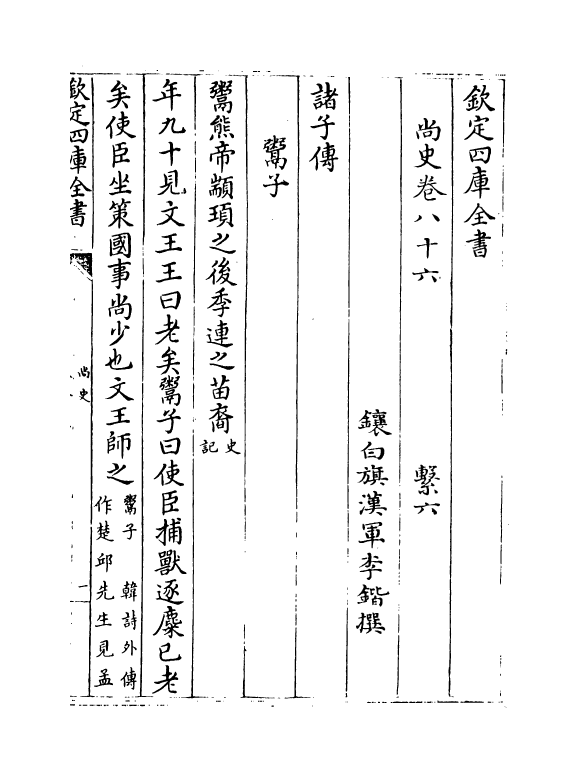 欽定四庫全書
尚史卷八十六　繫六
鑲白旗漢軍李鍇撰
諸子傳
鬻子
鬻熊帝顓頊之後季連之苗裔史記
年九十見文王王曰老矣鬻子曰使臣捕獸逐麋已老
矣使臣坐策國事尚少也文王師之鬻子　韓詩外傳作楚邱先生見孟
欽定四庫全書
尚史
一